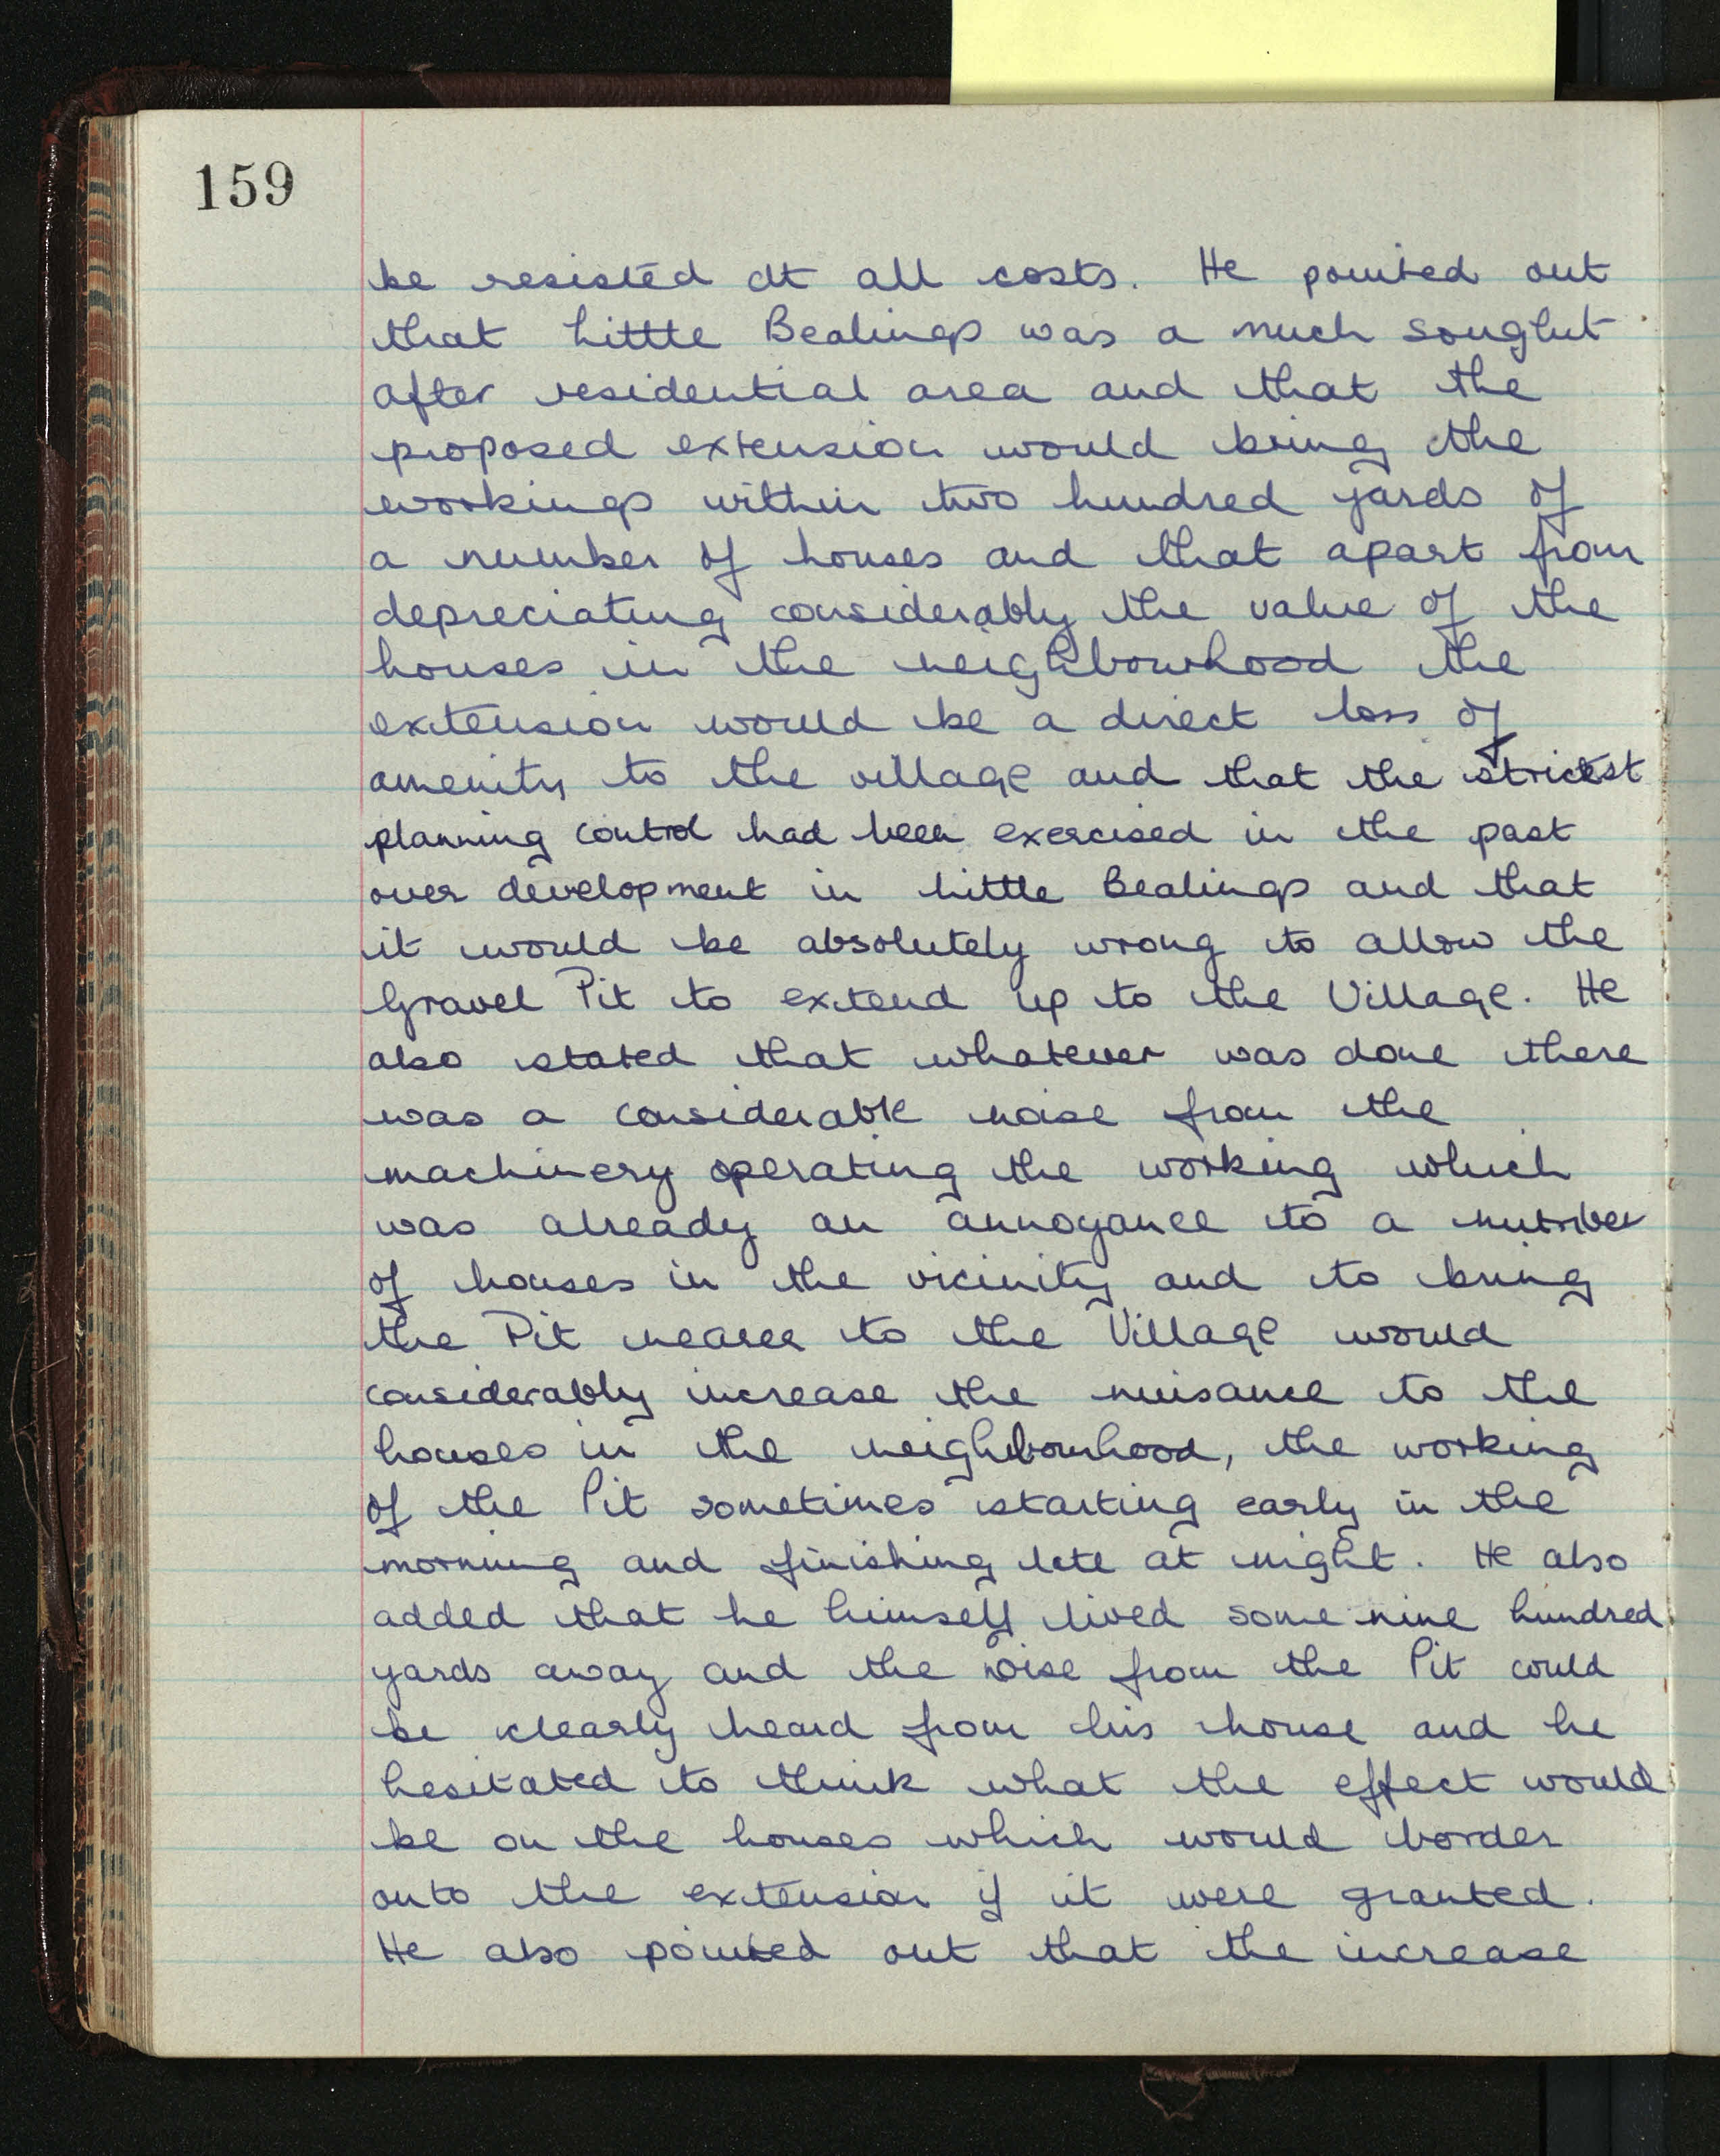 159
be resisted at all costs. He pointed out
that Little Bealings was a much sought
after residential area and that the
proposed extension would bring the
workings within two hundred yards of
a number of houses and that apart from
depreciating considerably the value of the
houses in the neighbourhood the
extension would be a direct loss of
amenity to the village and that the strictest
planning control had been exercised in the past
over development in Little Bealings and that
it would be absolutely wrong to allow the
Gravel Pit to extend up to the Village. He
also stated that whatever was done there
was a considerable noise from the
machinery operating the working which
was already an annoyance to a number
of houses in the vicinity and to bring
the Pit nearer to the Village would
considerably increase the nuisance to the
houses in the neighbourhood, the working
of the Pit sometimes starting early in the
morning and finishing late at night. He also
added that he himself lived some nine hundred
yards away and the noise from the Pit could
be clearly heard from his house and he
hesitated to think what the effect would
be on the houses which would border
onto the extension if it were granted.
He also pointed out that the increase